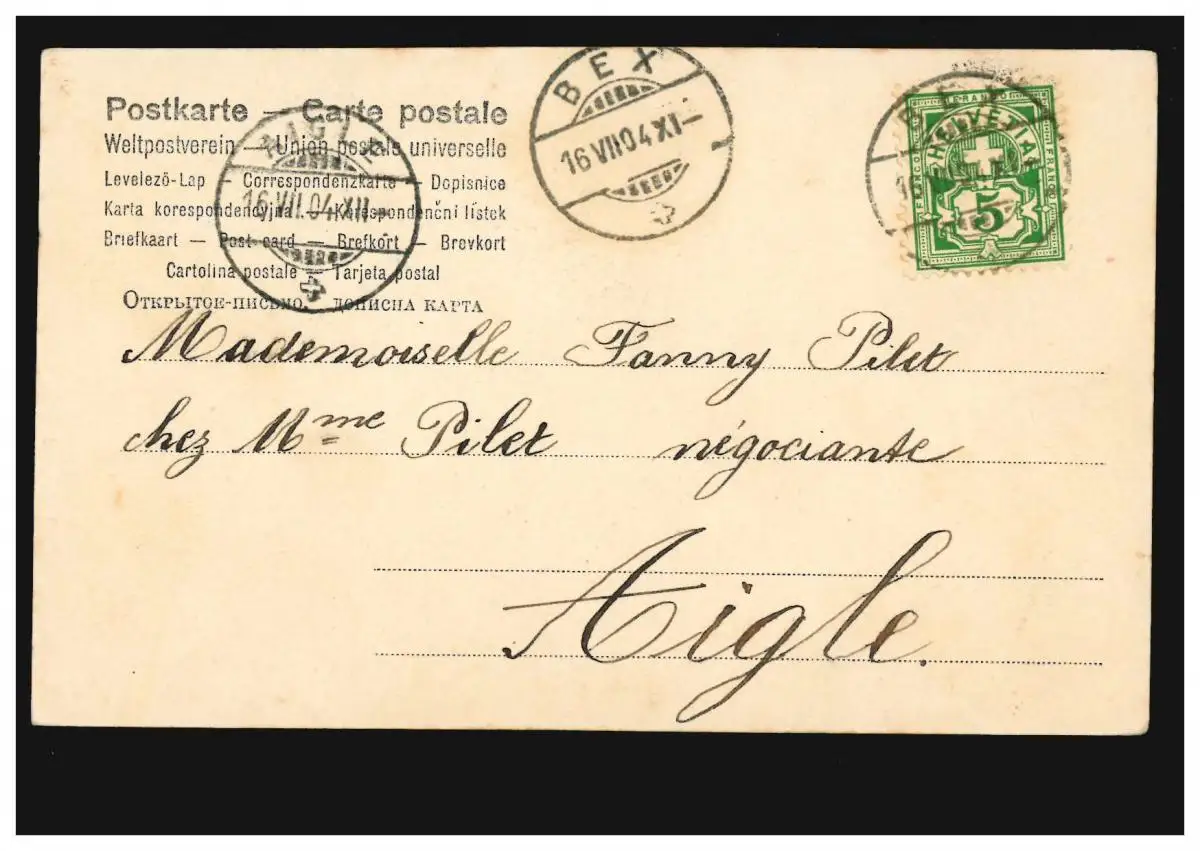 Postkarte — Carte postale
Weltpostverein — Union postale universelle
Levelező-Lap — Correspondenzkarte — Dopisnice
Karta korespondencyjna — Korespondenční lístek
Briefkaart — Post-card — Brefkort — Brevkort
Cartolina postale — Tarjeta postal
Открытое-письмо. — дописна карта
AIGLE
16.VII.04.XII–
BEX
16 VII 04 XI–
HELVETIA
FRANCO
5
Mademoiselle Fanny Pilet
chez Mme Pilet négociante
Aigle.